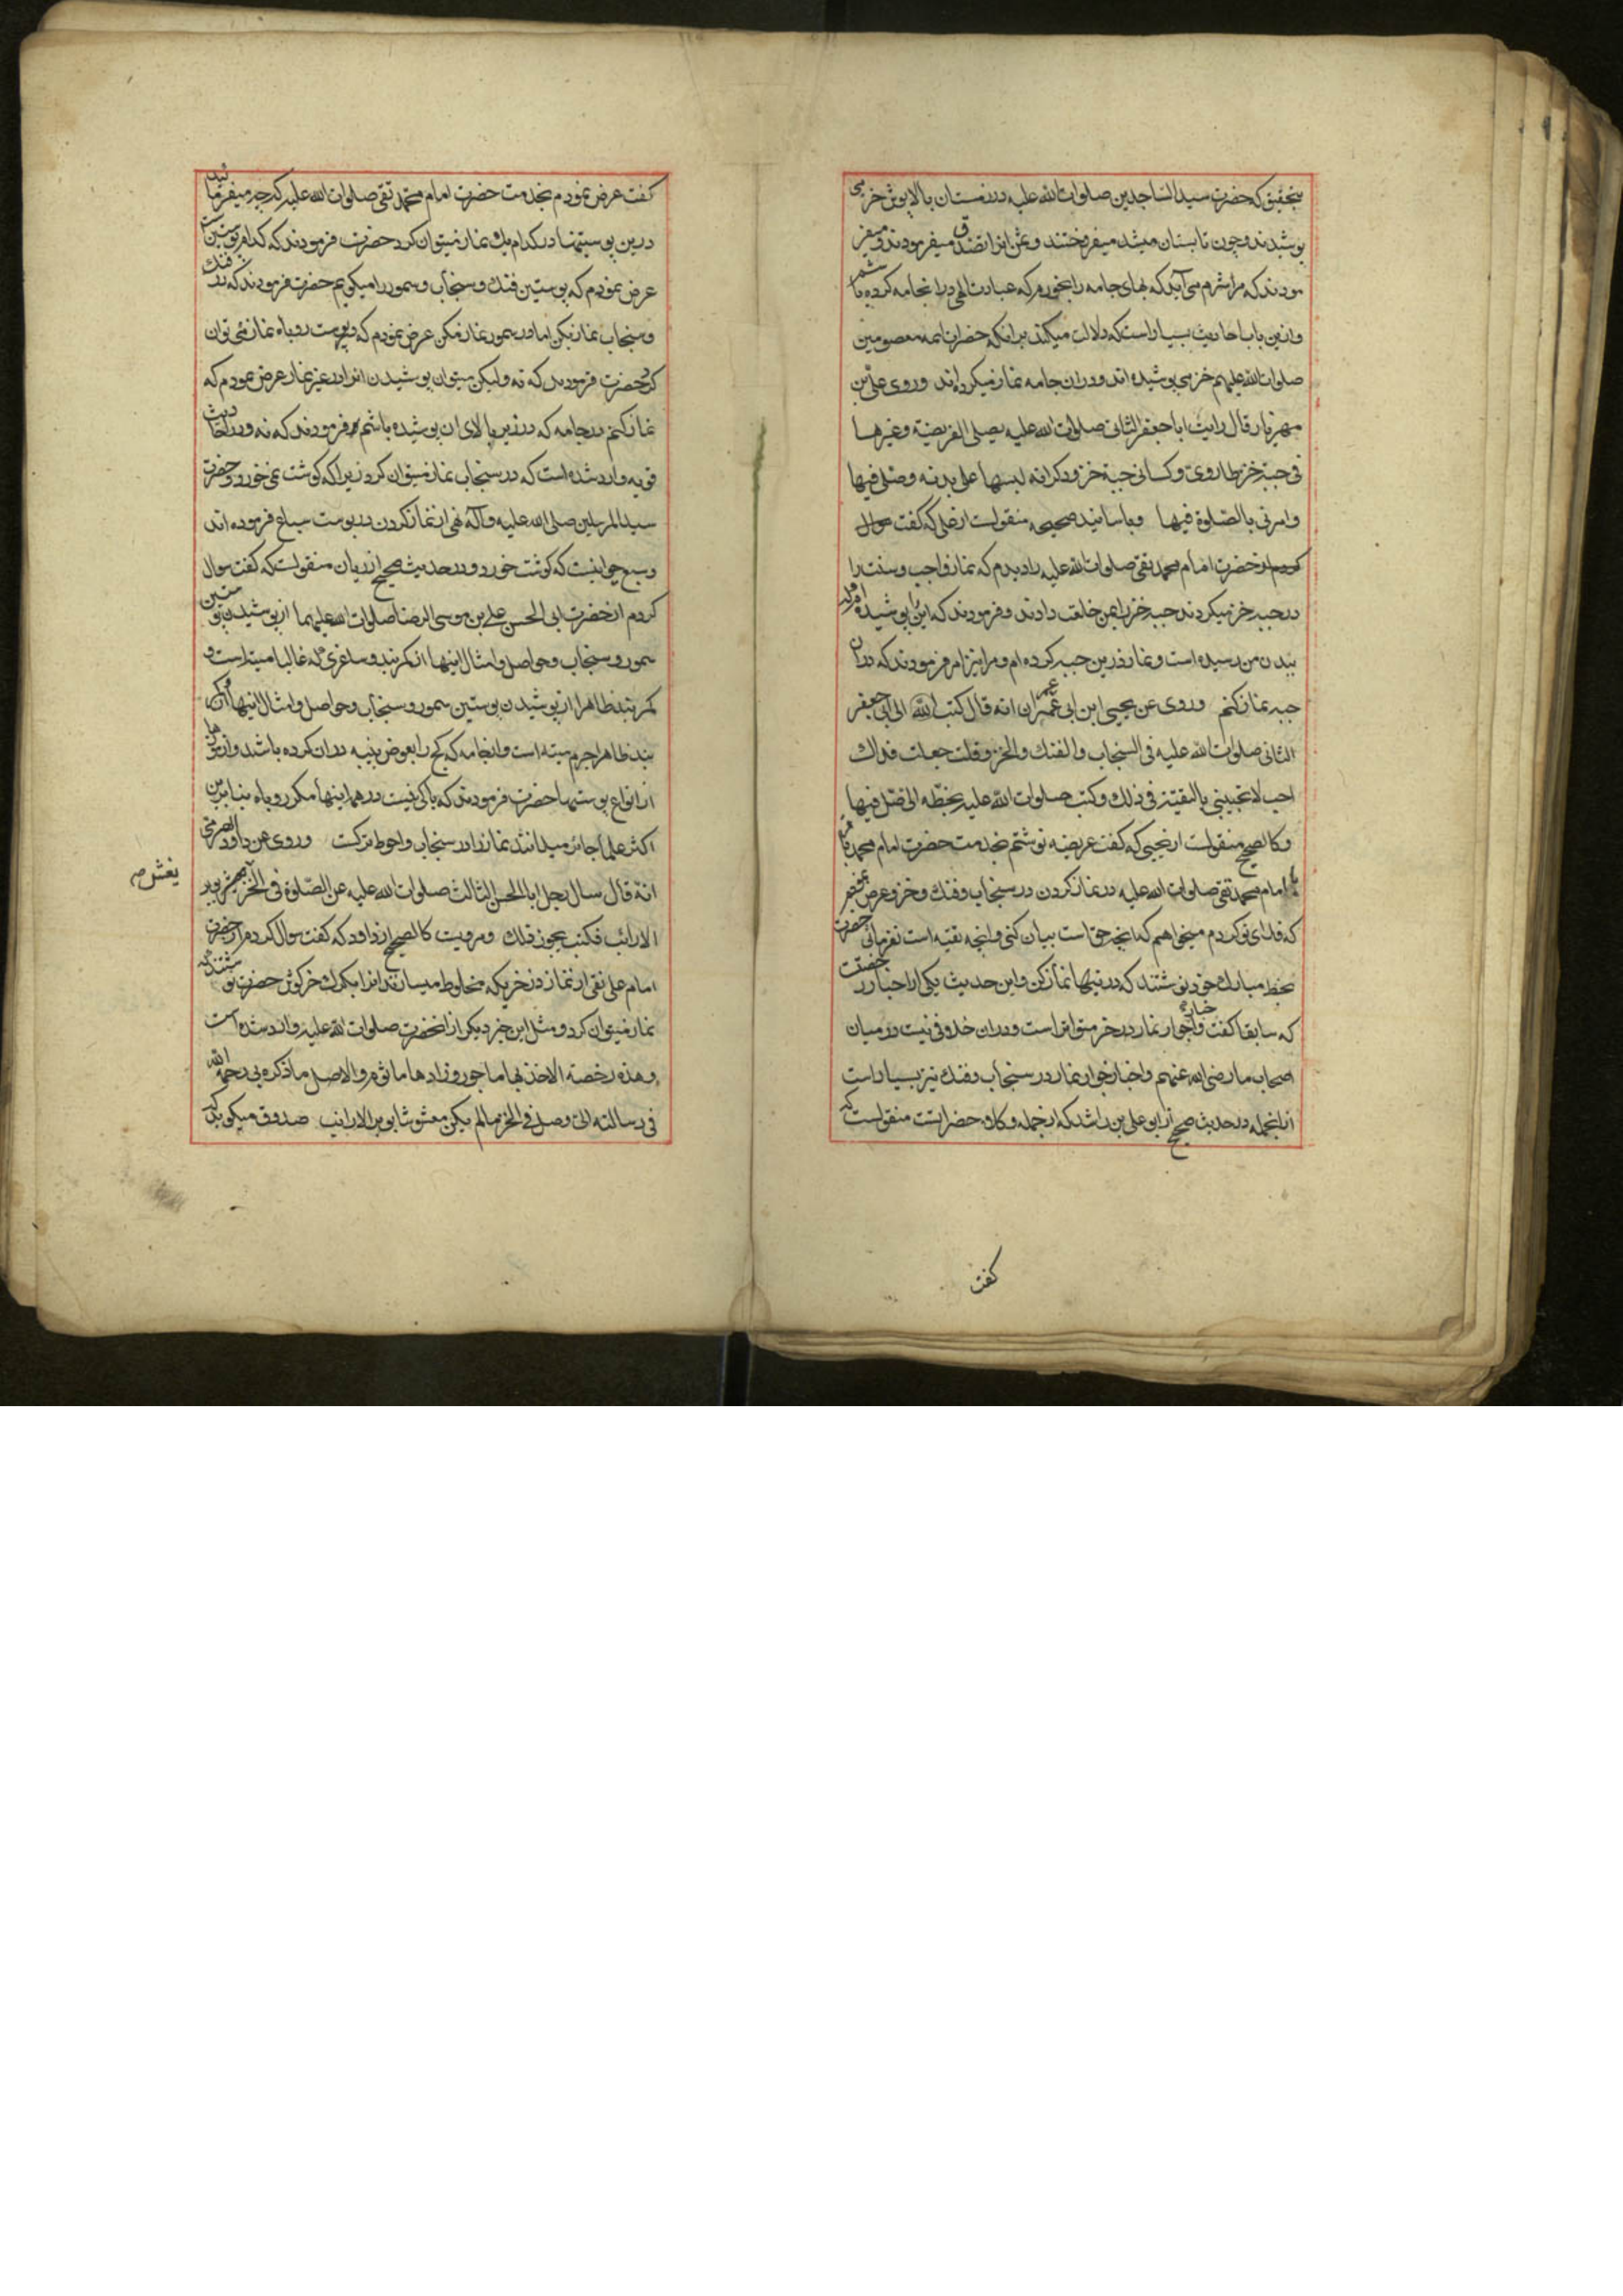 بتحقیق که حضرت سید الساجدین صلوات الله علیه در زمستان بالاپوش خز می
پوشیدند و چون تابستان میشد میفروختند و ثمن انرا تصدق میفرمودند و میفر
مودند که مرا شرم می آید که بهای جامه را بخورم که عبادت الهی در انجامه کرده باشم
و ازین باب احادیث بسیار است که دلالت میکند برانکه حضرات ائمه معصومین
صلوات الله علیهم خز می پوشیده اند و در ان جامه نماز میکرده اند و روی علی بن
مهزیار قال رایت ابا جعفر الثانی صلوات الله علیه یصلی الفریضة و غیرها
فی جبة خز طاروی و کسانی جبة خز و ذکر انه لبسها علی بدنه و صلی فیها
و امرنی بالصلوة فیها و باسانید صحیحه منقولست از علی که گفت سوال
کردم از حضرت امام محمد تقی صلوات الله علیه را دیدم که نماز واجب و سنت را
در جبه خز میکردند جبه خز را بمن خلعت دادند و فرمودند که این را پوشیده ام و به
بدن من رسیده است و نماز درین جبه کرده ام و مرا نیز امر فرمودند که در ان
جبه نماز کنم و روی عن یحیی ابن ابی عمران انه قال کتبت الی ابی جعفر
الثانی صلوات الله علیه فی السنجاب و الفنک و الخز و قلت جعلت فداک
احب لا تجیبنی بالتقیة فی ذلک و کتب صلوات الله علیه بخطه الی صل فیها
و کالصحیح منقولست از یحیی که گفت عریضه نوشتم بخدمت حضرت امام محمد
امام محمد تقی صلوات الله علیه در نماز کردن در سنجاب و فنک و خز و عرض
که فدای تو کردم میخواهم که انچه حق است بیان کنی و انچه تقیه است نفرمائی حضرت
بخط مبارک خود نوشتند که در تنها نماز کن و این حدیث یکی از اخبار
که سابقا گفت و اخبار جواز نماز در خز متواتر است و در ان خلافی نیست در میان
اصحاب ما رضی الله عنهم و اخبار جواز نماز در سنجاب و فنک نیز بسیار است
از انجمله در حدیث صحیح از ابو علی بن راشد که از جمله وکلاء حضرانست منقولست که
گفت
گفت عرض نمودم بخدمت حضرت امام محمد تقی صلوات الله علیه که چه میفرمائید
درین پوستینها در کدام یک نماز میتوان کرد حضرت فرمودند که کدام پوستین
عرض نمودم که پوستین فنک و سنجاب و سمور را میگویم حضرت فرمودند که در فنک
و سنجاب نماز بکن اما در سمور نماز مکن عرض نمودم که در پوست روباه نماز می توان
کرد حضرت فرمودند که نه ولیکن میتوان پوشیدن انرا در غیر نماز عرض نمودم که
نماز کنم در جامه که در زیر یا لای ان پوشیده باشم فرمودند که نه و در احادیث
قویه وارد شده است که در سنجاب نماز میتوان کرد زیرا که گوشت نمی خورد و حضرت
سید المرسلین صلی الله علیه و آله نهی از نماز کردن در پوست سباع فرموده اند
و سبع حیوانیست که گوشت خورد و در حدیث صحیح از ریان منقولست که گفت سوال
کردم از حضرت ابی الحسن علی بن موسی الرضا صلوات الله علیهما از پوشیدن پوستین
سمور و سنجاب و حواصل و امثال اینها از کمر بند و ساغری که غالبا میته است و
کمر بند ظاهرا از پوشیدن پوستین سمور و سنجاب و حواصل و امثال اینها
بند ظاهرا جرم میته است و انجامه که کج را بعوض پنبه در ان کرده باشند و از
از انواع پوستها حضرت فرمودند که باکی نیست در همه اینها مگر روباه بنا برین
اکثر علما جائز میدانند نماز را در سنجاب و احوط ترکست و روی عن داود الصرمی
انه قال سال رجل ابا الحسن الثالث صلوات الله علیه عن الصلوة فی الخز یغش بوبر
الارانب فکتب یجوز ذلک و مرویست کالصحیح از داود که گفت سوال کردم از حضرت
امام علی نقی از نماز در خزیکه مخلوط میسازند انرا بکرک خرگوش حضرت نوشتند که
نماز میتوان کرد و مثل این خبر دیگر از انحضرت صلوات الله علیه وارد شده است
و هذه رخصة الاخذ بها ماجور و رادها ماثوم و الاصل ما ذکره ابی رحمه الله
فی رسالته الی و صل فی الخز ما لم یکن مغشوشا بوبر الارانب صدوق میگوید که
یغش